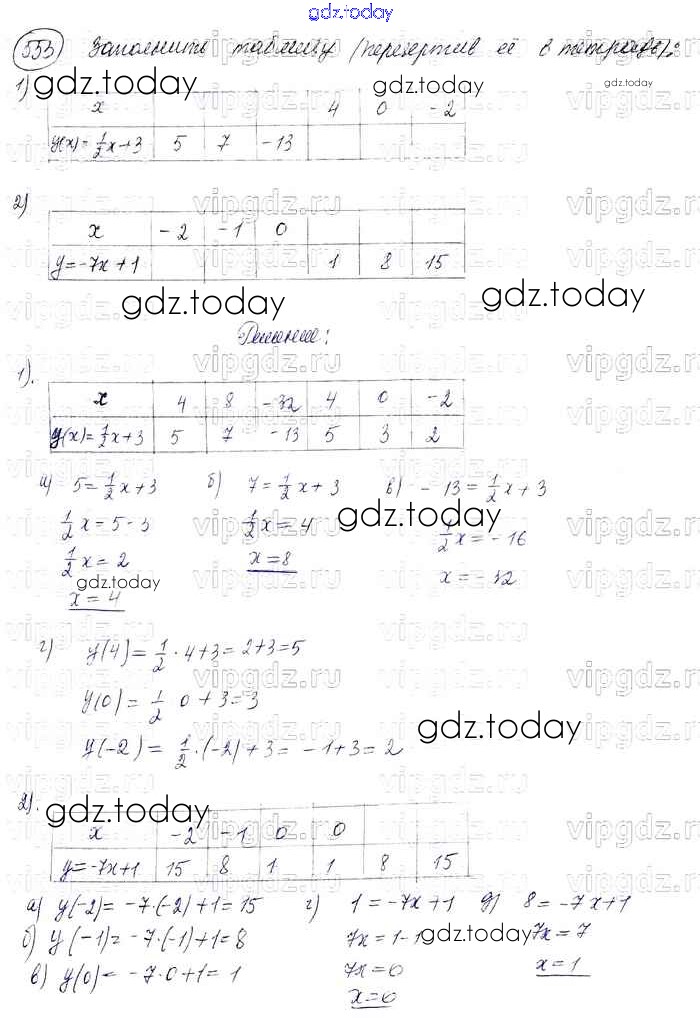 gdz.today
553 Заполнить таблицу (перечертив её в тетрадь):
gdz.today
1)
x 4 0 -2
y(x) = 1/2x+3 5 7 -13
2)
x -2 -1 0
y=-7x+1 1 8 15
gdz.today gdz.today
Решение:
1).
x 4 8 -32 4 0 -2
y(x)=1/2x+3 5 7 -13 5 3 2
а) 5=1/2x+3 б) 7=1/2x+3 в) -13=1/2x+3
1/2x=5-3 1/2x=4 1/2x=-16
1/2x=2 x=8 x=-32
x=4
gdz.today
г) y(4)=1/2·4+3=2+3=5
y(0)=1/2 0+3=3
y(-2)=1/2·(-2)+3=-1+3=2
gdz.today
2).
gdz.today
x -2 -1 0 0
y=-7x+1 15 8 1 1 8 15
а) y(-2)=-7·(-2)+1=15 г) 1=-7x+1 д) 8=-7x+1
б) y(-1)=-7·(-1)+1=8 7x=1-1 7x=7
в) y(0)=-7·0+1=1 7x=0 x=1
x=0
gdz.today
vipgdz.ru